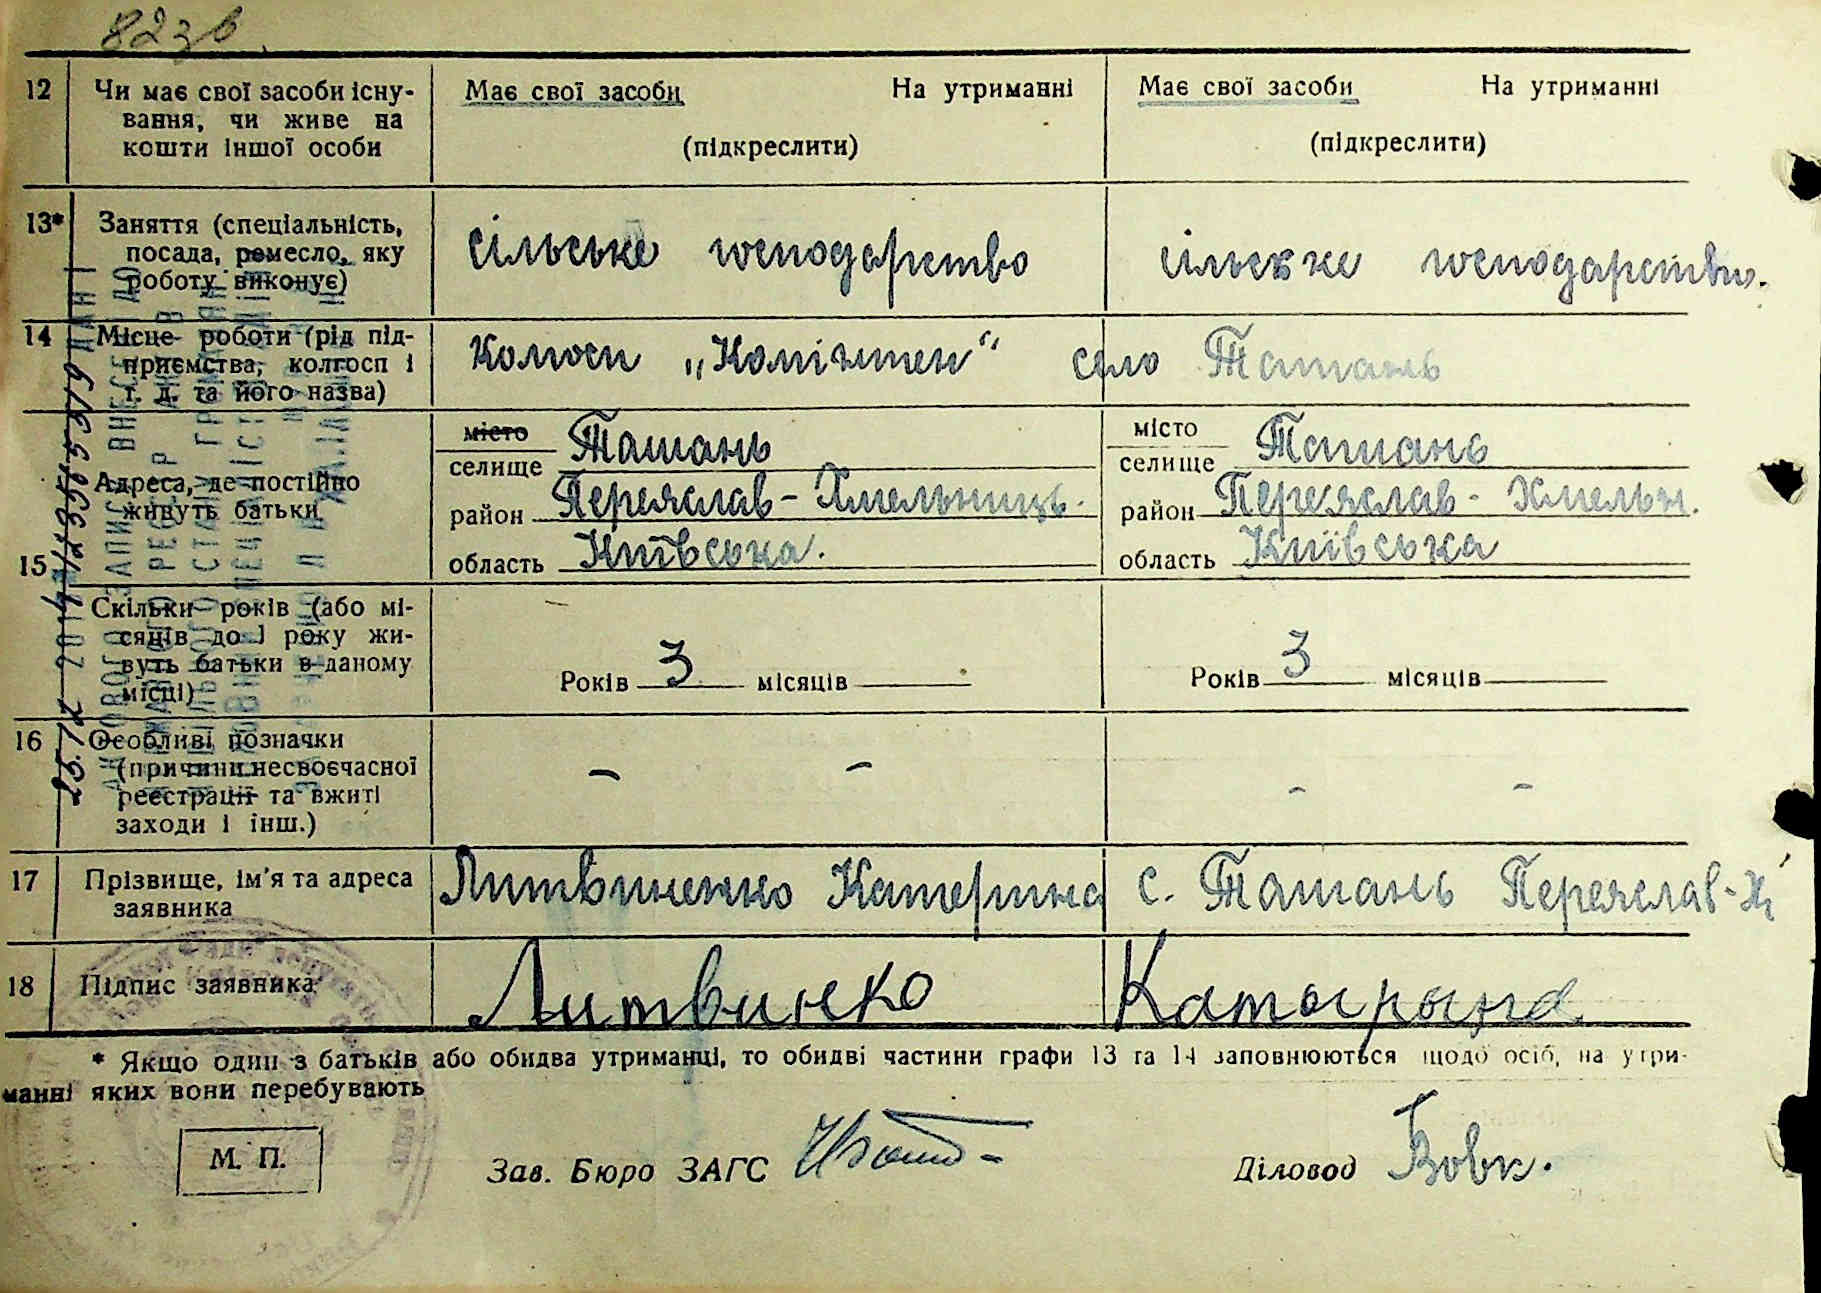 823 в
12 Чи має свої засоби існу- Має свої засоби На утриманні Має свої засоби На утриманні
вання, чи живе на
кошти іншої особи (підкреслити) (підкреслити)
13* Заняття (спеціальність, сільське господарство сільске господарство.
посада, ремесло, яку
роботу виконує)
14 Місце роботи (рід під- Колгосп „Комінтен“ село Ташань
приємства, колгосп і
т. д. та його назва)
15 Адреса, де постійно місто Ташань місто Ташань
живуть батьки селище селище
район Переяслав-Хмельницьк. район Переяслав-Хмельн.
область Київська. область Київська
Скільки років (або мі-
сяців до 1 року жи-
вуть батьки в даному Років 3 місяців Років 3 місяців
місці)
16 Особливі позначки
(причини несвоєчасної – – - -
реєстрації та вжиті
заходи і інш.)
17 Прізвище, ім'я та адреса Литвиненко Катерина с. Ташань Переяслав-Х
заявника
18 Підпис заявника Литвинко Катырына
* Якщо один з батьків або обидва утриманці, то обидві частини графи 13 та 14 заповнюються щодо осіб, на утри-
манні яких вони перебувають
М. П. Зав. Бюро ЗАГС Діловод Вовк.